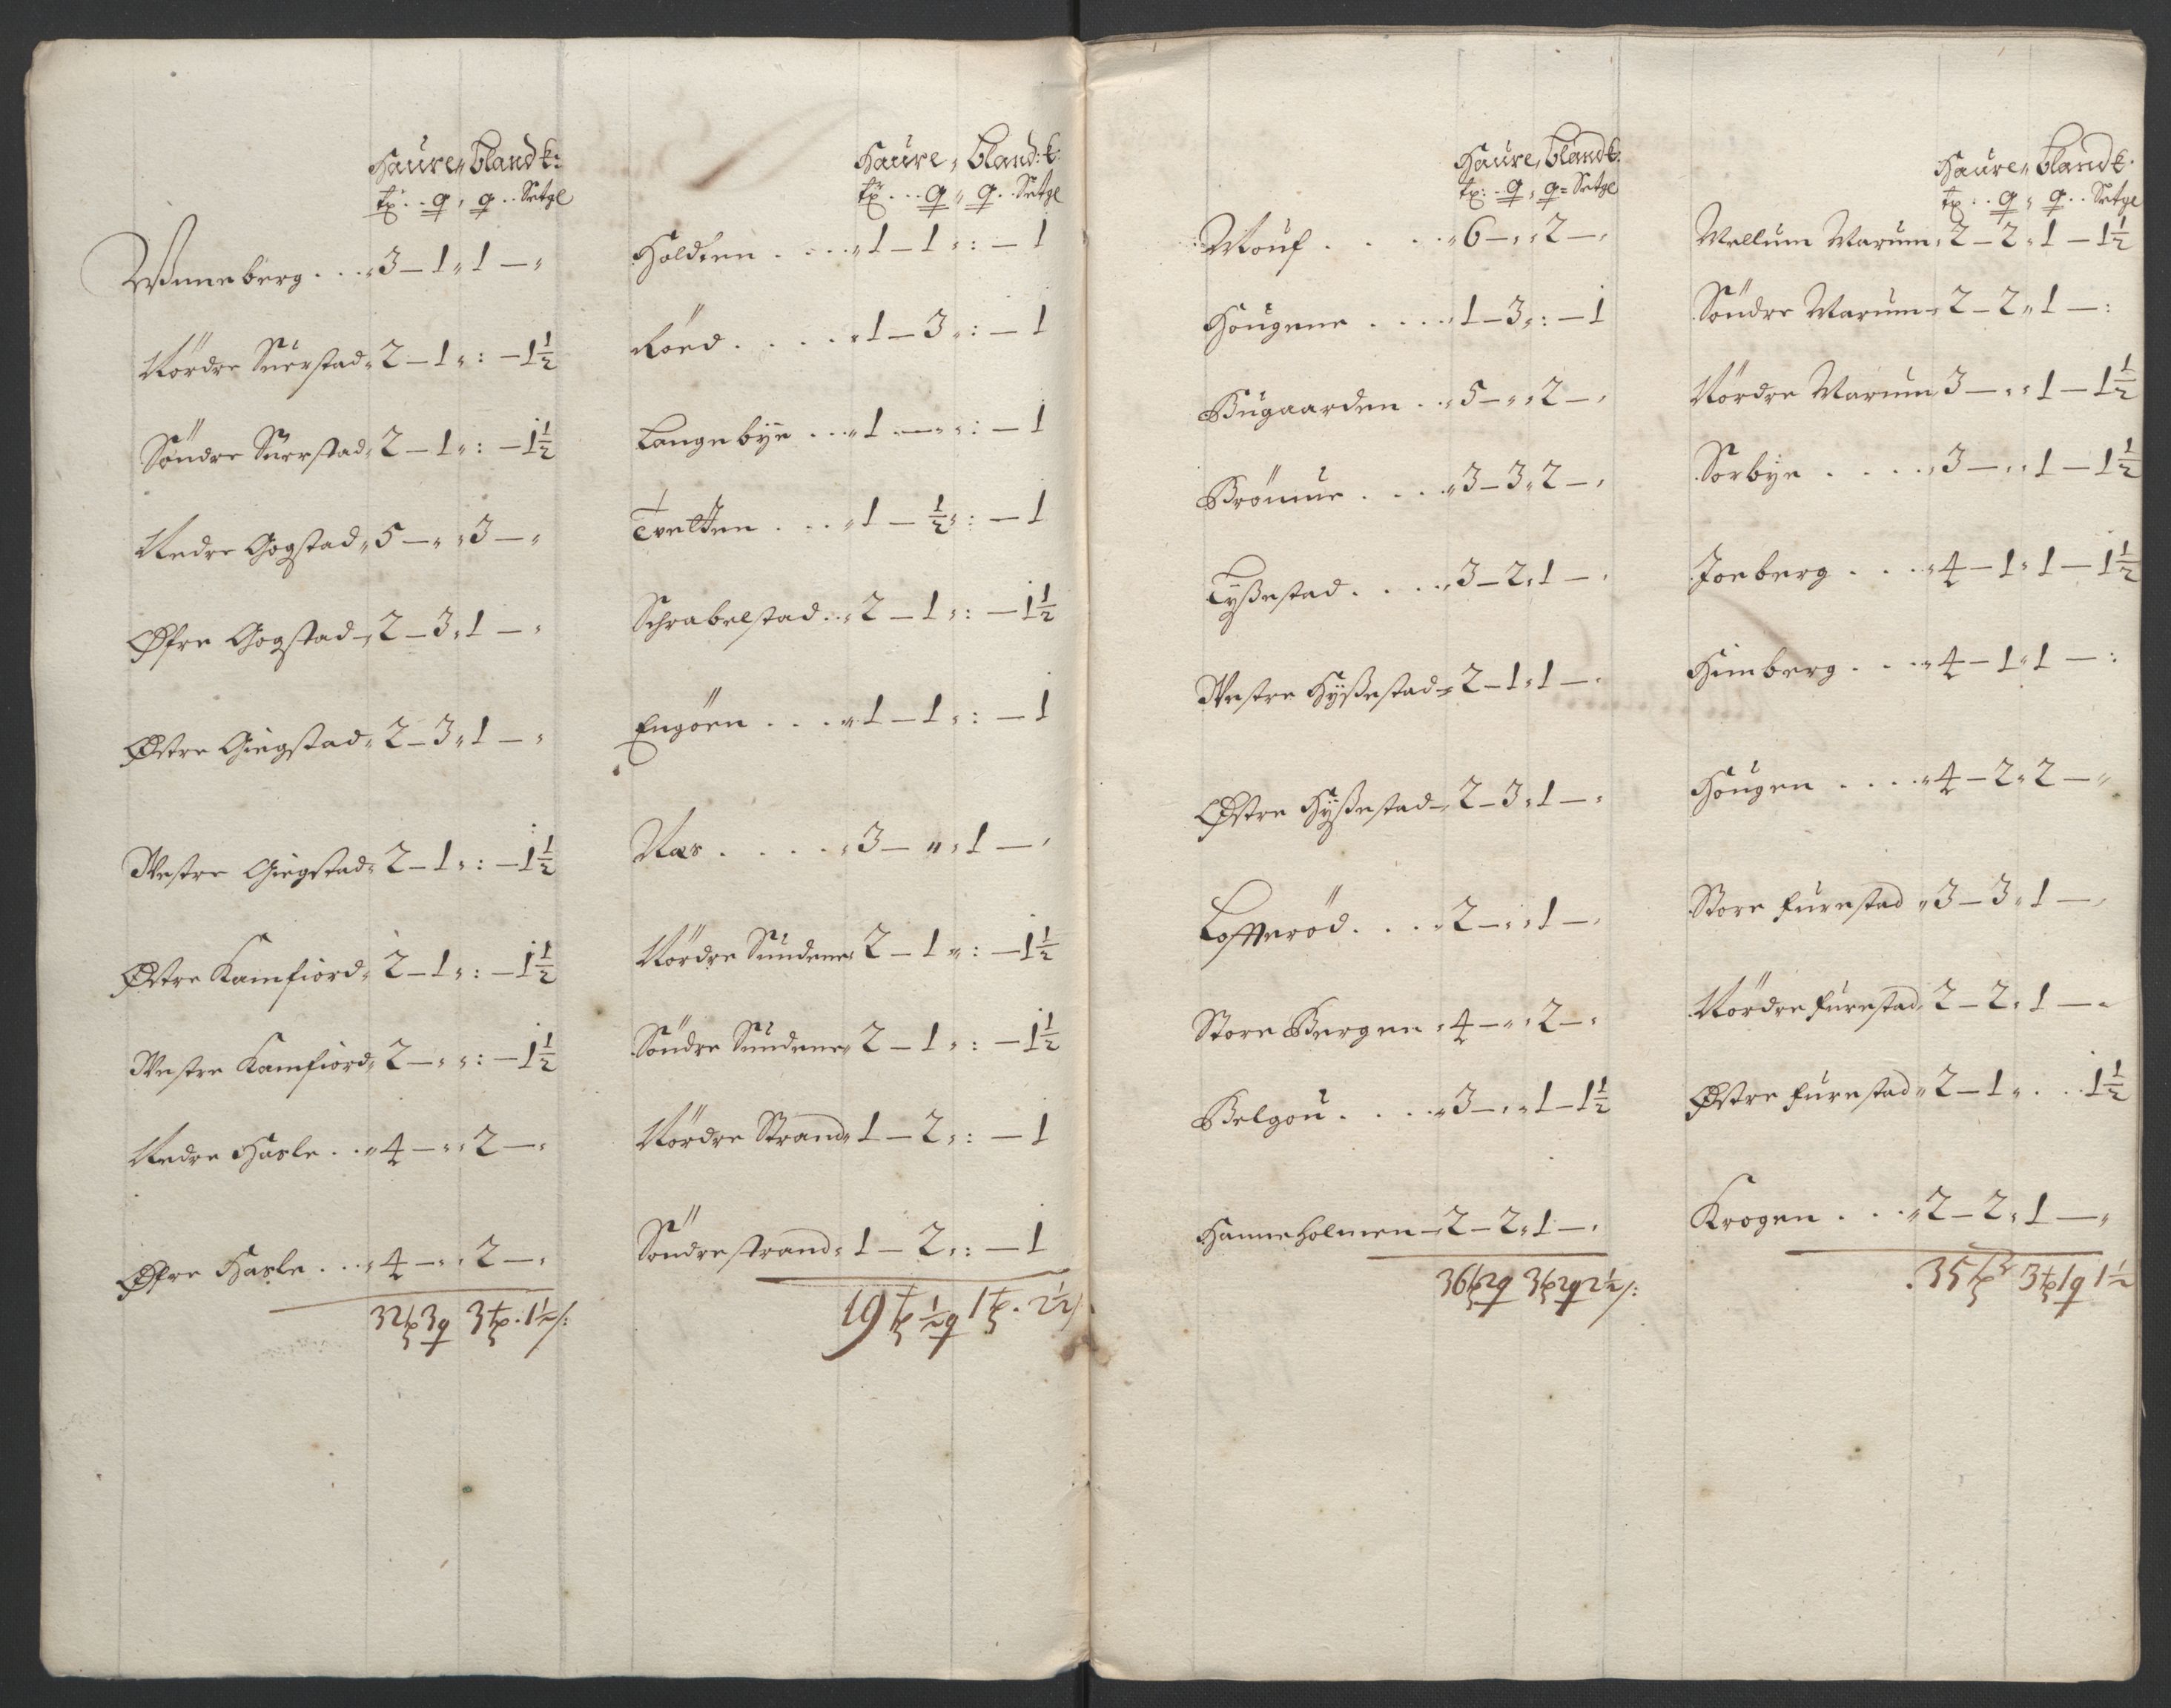 Haure „ bland k:
tr: . . q , q . . Setgl
Winneberg . . . „ 3 – 1 „ 1 – „
Nördre Suerstad „ 2 – 1 „ : – 1½
Söndre Suerstad „ 2 – 1 „ : – 1½
Nedre Gogstad „ 5 – „ „ 3 – „
Øfre Gogstad – „ 2 – 3 „ 1 – „
Østre Giegstad „ 2 – 3 „ 1 – „
Westre Giegstad „ 2 – 1 „ : – 1½
Østre Kamfiord „ 2 – 1 „ : – 1½
Westre Kamfiord „ 2 – „ „ : – 1½
Nedre Hasle . . „ 4 – „ „ 2 – „
Øfre Hasle . . . „ 4 – „ „ 2 – „
32 tr 3 q 3 tr . 1½ /:
Haure „ bland: k:
tr . . . q „ q . . Setgl
Holdten . . . . „ 1 – 1 „ : – 1
Röed . . . . . „ 1 – 3 „ : – 1
Langebÿe . . . „ 1 – „ „ : – 1
Tvetten . . . „ 1 – ½ „ : – 1
Schrabelstad . . „ 2 – 1 „ : – 1½
Engöen . . . . „ 1 – 1 „ : – 1
Næs . . . . . „ 3 – „ „ 1 – „
Nördre Sundene „ 2 – 1 „ : – 1½
Söndre Sundene „ 2 – 1 „ : – 1½
Nördre Strand „ 1 – 2 „ : – 1
Söndre strand „ 1 – 2 „ : – 1
19 tr ½ q 1 tr . 2½ /
Haure „ bland k:
tr: . q , q = Setgl
Mouf . . . . . „ 6 – „ „ 2 – „
Hougene . . . . „ 1 – 3 „ : – 1
Bugaarden . . „ 5 – „ „ 2 – „
Brömne . . . . „ 3 – 3 „ 2 – „
Tÿßestad . . . . „ 3 – 2 „ 1 – „
Westre Hÿßestad „ 2 – 1 „ 1 – „
Østre Hÿßestad – „ 2 – 3 „ 1 – „
Lofferöd . . . . „ 2 – „ „ 1 – „
Store Bergen „ 4 – „ „ 2 – „
Belgou . . . . . „ 3 – „ „ 1 – 1½
Hanneholmen – „ 2 – 2 „ 1 – „
36 tr 2 q 3 tr 2 q 2½ /:
Haure „ bland k:
tr : . . q „ q . . Setgl
Mellum Marum „ 2 – 2 „ 1 – 1½
Söndre Marum „ 2 – 2 „ 1 – :
Nördre Marum 3 – „ „ 1 – 1½
Sorbÿe . . . . . „ 3 – „ „ 1 – 1½
Joeberg . . . . „ 4 – 1 „ 1 – 1½
Himberg . . . . „ 4 – 1 „ 1 – :
Hougen . . . . . „ 4 – 2 „ 2 – „
Store furestad „ 3 – 3 „ 1 – „
Nördre furestad „ 2 – 2 „ 1 – „
Østre furestad „ 2 – 1 „ . . 1½
Krogen . . . „ 2 – 2 „ 1 – „
35 tr 3 tr 1 q 1½